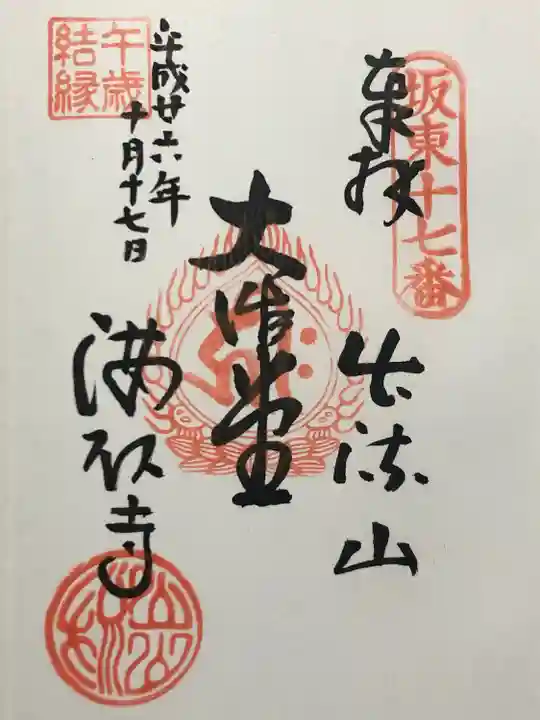 坂東十七番
奉拝
出流山
大悲堂
満願寺
平成廿六年
十月十七日
午歳
結縁